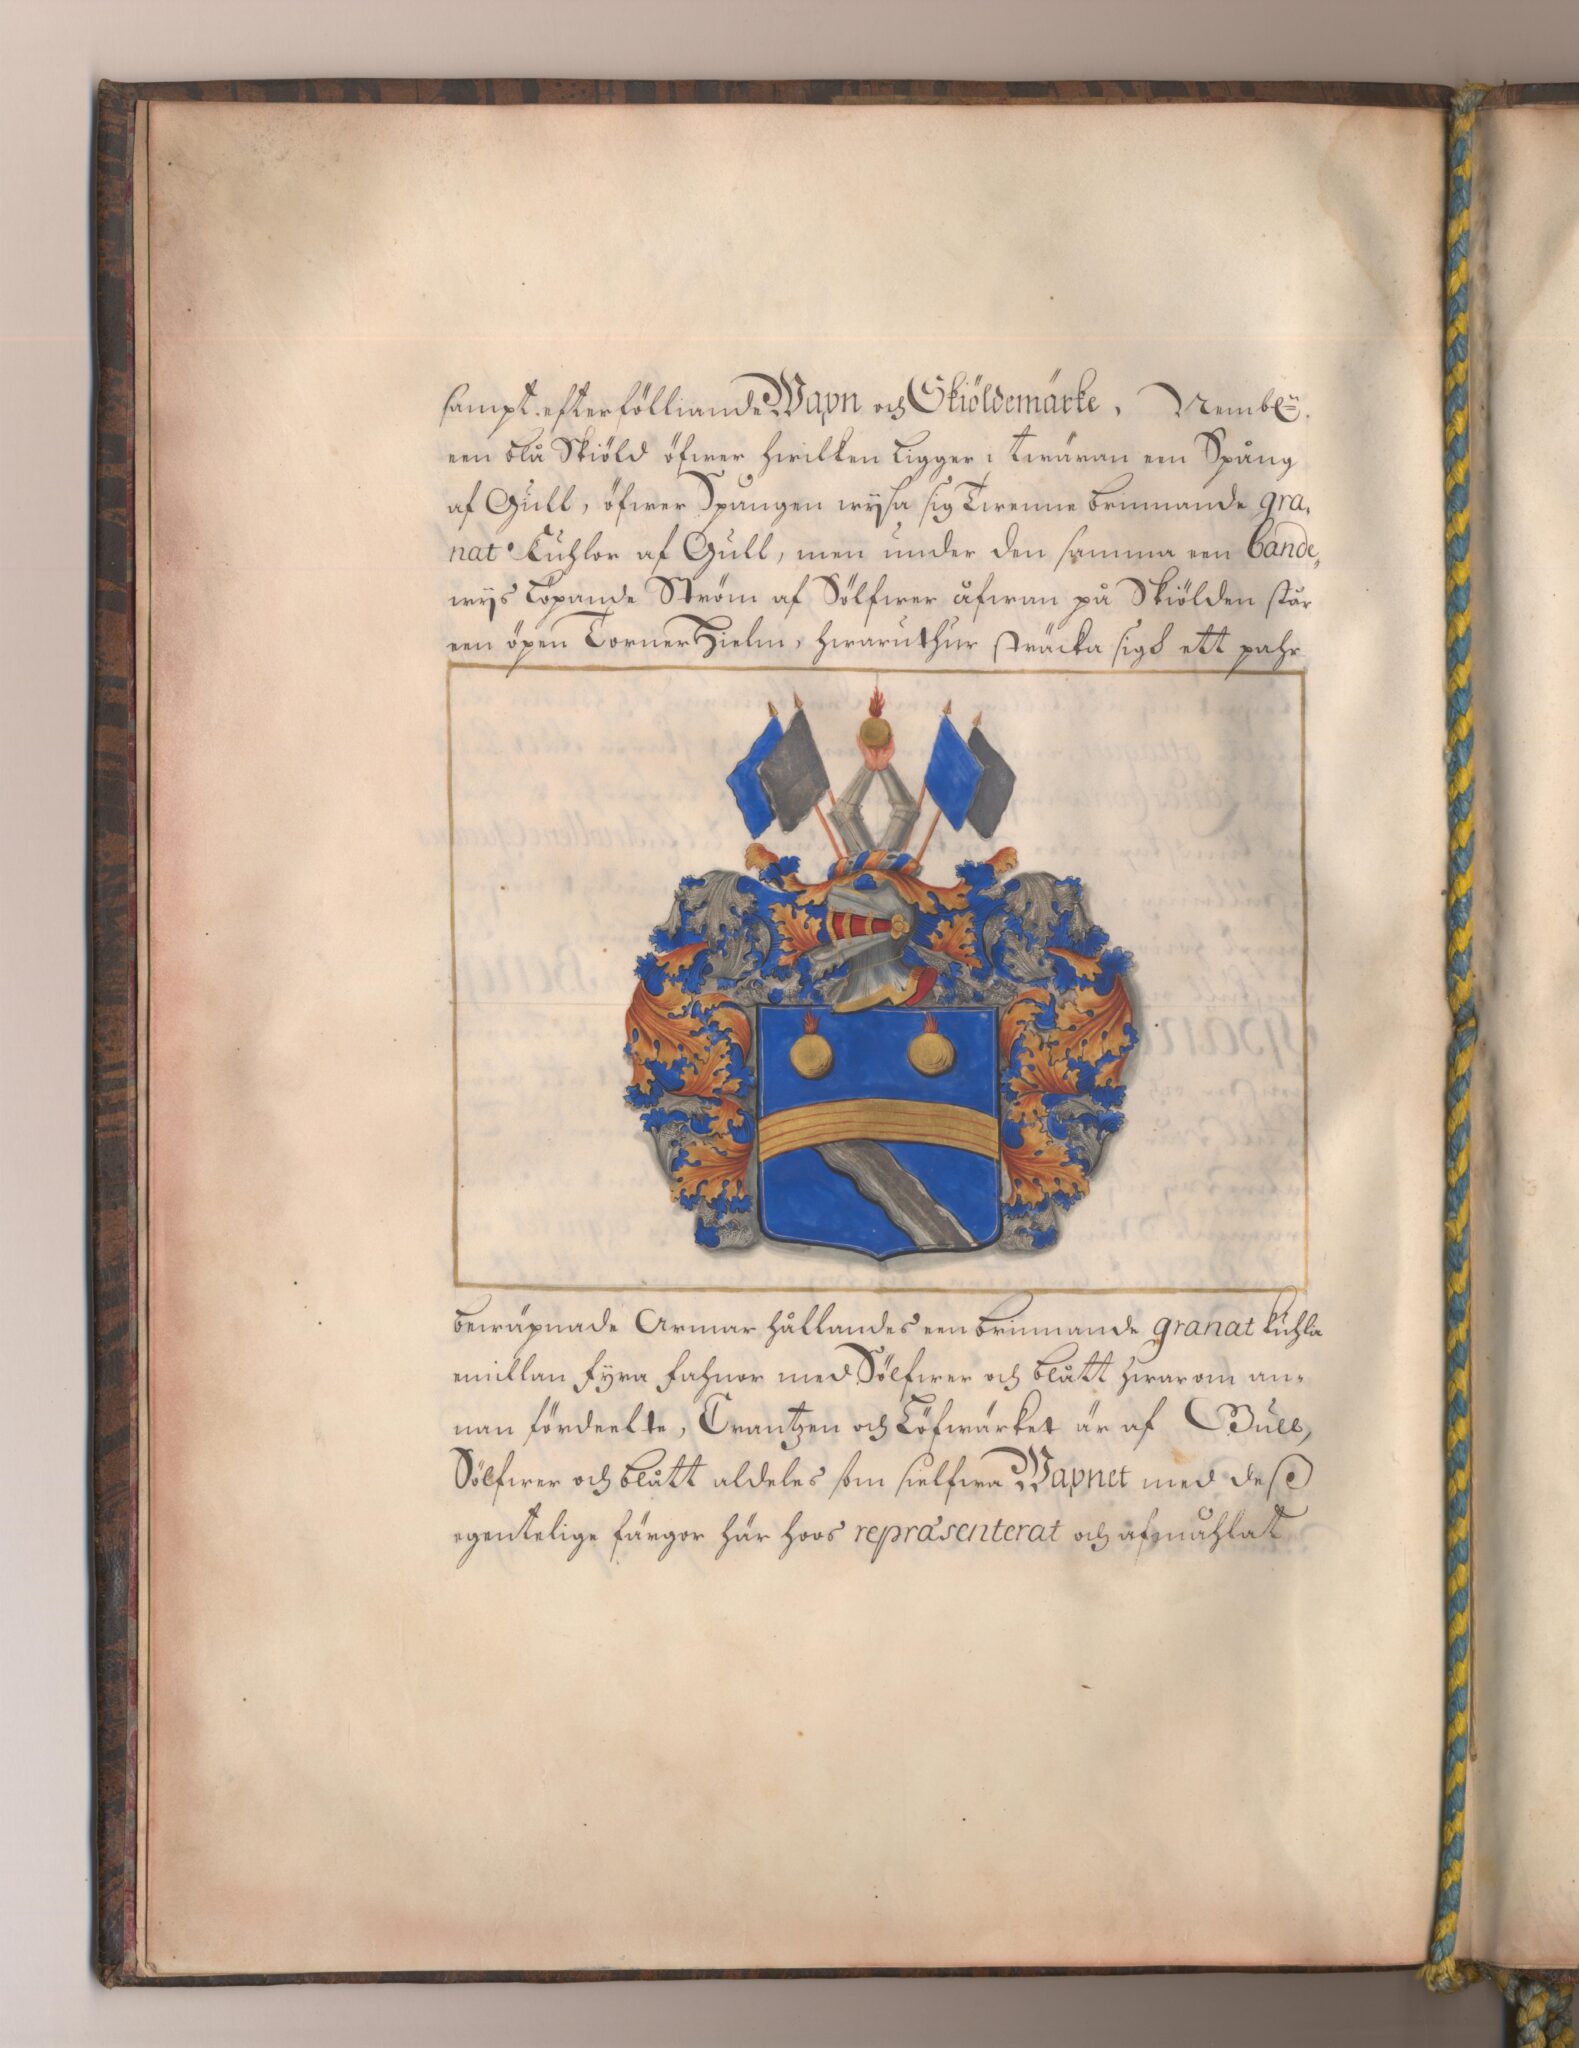 sampt efterfölliande Wapn och Skiöldemärke, Nembl:
een blå Skiöld öfwer hwilken ligger i twäran een Spång
af Gull, öfwer Spången wysa sig Twenne brinnande gra,
nat Kuhlor af Gull, men under den samma een bande,
wys Löpande Ström af Sölfwer åfwan på Skiölden står
een öpen Torner Hielm, hwaruthur sträcka sigh ett pahr
bewäpnade Armar hållandes een brinnande granat Kuhla
emillan fyra fahnor med Sölfwer och blått hwar om an-
nan fördeelte, Crantzen och Löfwärket är af Gull,
Sölfwer och blått aldeles som sielfwa Wapnet med deß
egentelige färgor här hoos repræsenterat och afmåhlat